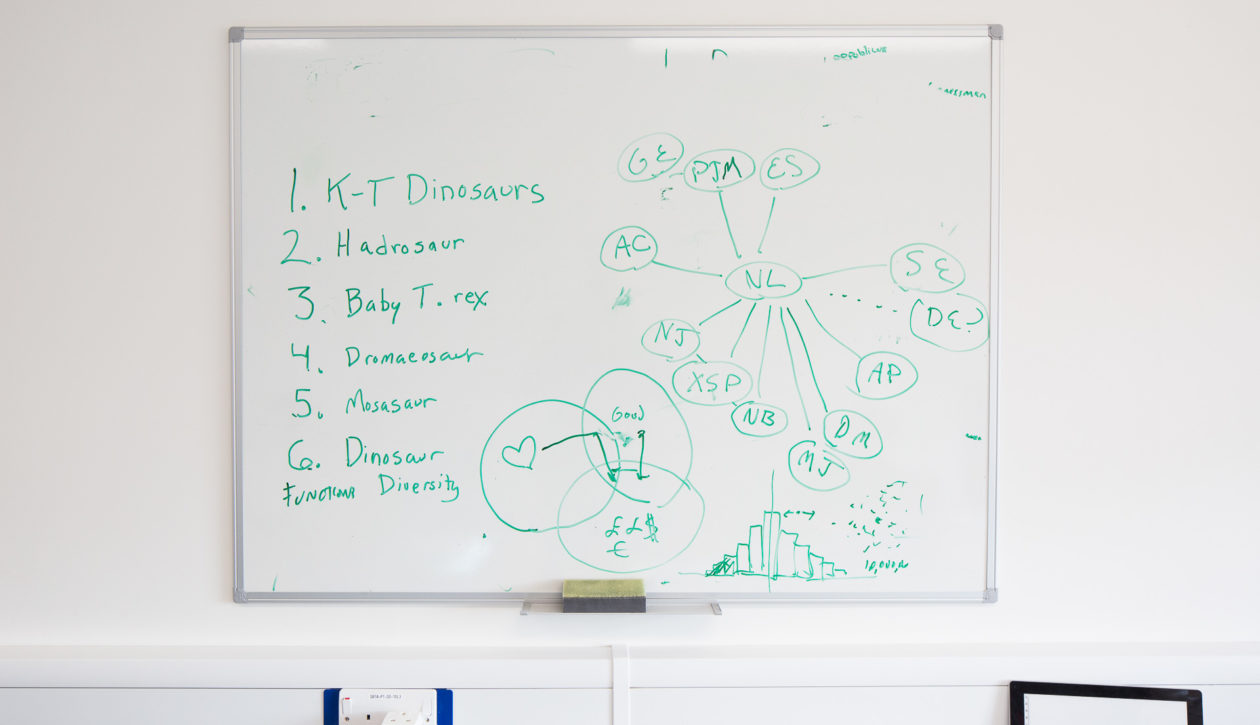 1. K-T Dinosaurs
2. Hadrosaur
3. Baby T. rex
4. Dromaeosaur
5. Mosasaur
6. Dinosaur
Diversity
GE
PJM
ES
AC
NL
SE
DE?
NJ
XSP
NB
AP
DM
MJ
Good
££$
€